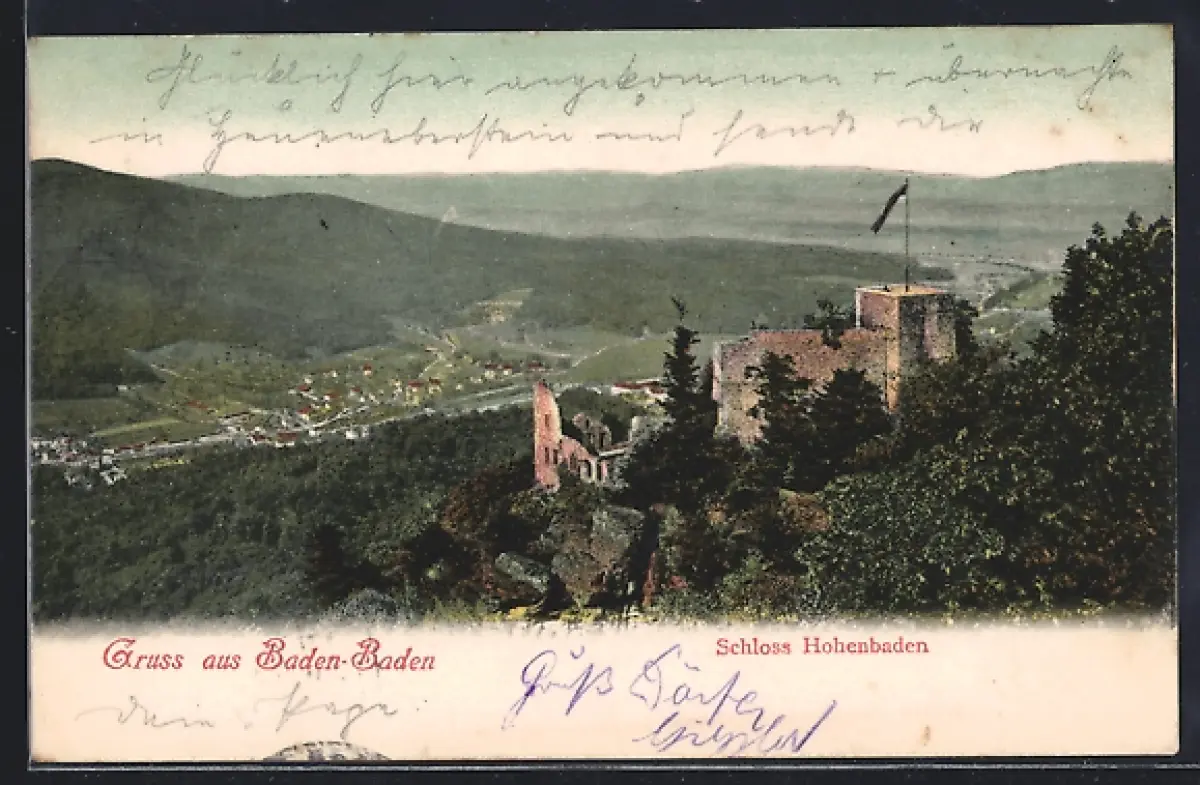 Glücklich hier angekommen + übernachte
in Heueneberstein und sende dir
Gruss aus Baden-Baden
Schloss Hohenbaden
Gruß
dein